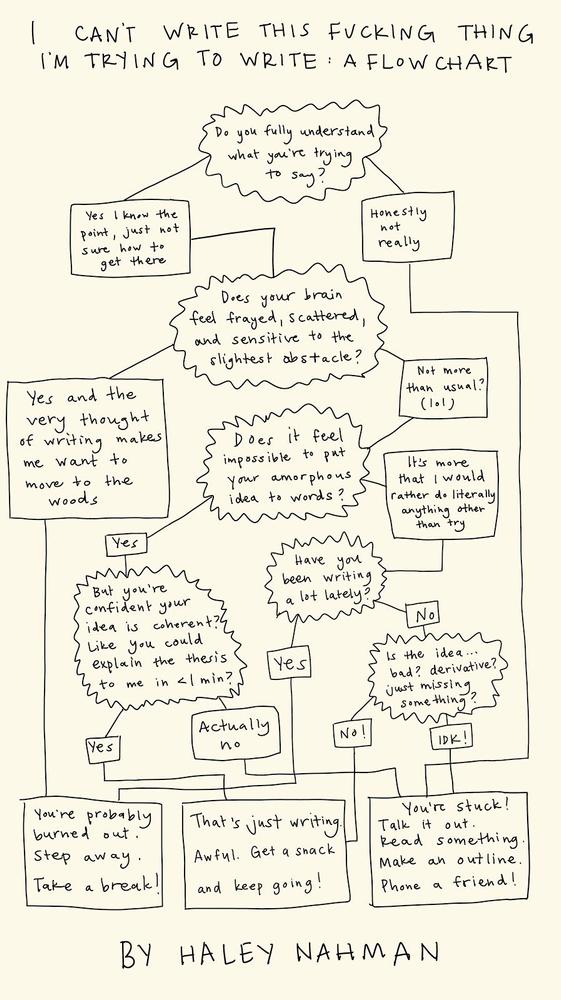 I CAN'T WRITE THIS FUCKING THING
I'M TRYING TO WRITE: A FLOWCHART
Do you fully understand
what you're trying
to say?
Yes I know the
point, just not
sure how to
get there
Honestly
not
really
Does your brain
feel frayed, scattered,
and sensitive to the
slightest obstacle?
Yes and the
very thought
of writing makes
me want to
move to the
woods
Not more
than usual?
(lol)
Does it feel
impossible to put
your amorphous
idea to words?
It's more
that I would
rather do literally
anything other
than try
Yes
Have you
been writing
a lot lately?
But you're
confident your
idea is coherent?
Like you could
explain the thesis
to me in <1 min?
No
Yes
Is the idea...
bad? derivative?
just missing
something?
Yes
Actually
no
No!
IDK!
You're probably
burned out.
Step away.
Take a break!
That's just writing.
Awful. Get a snack
and keep going!
You're stuck!
Talk it out.
Read something.
Make an outline.
Phone a friend!
BY HALEY NAHMAN